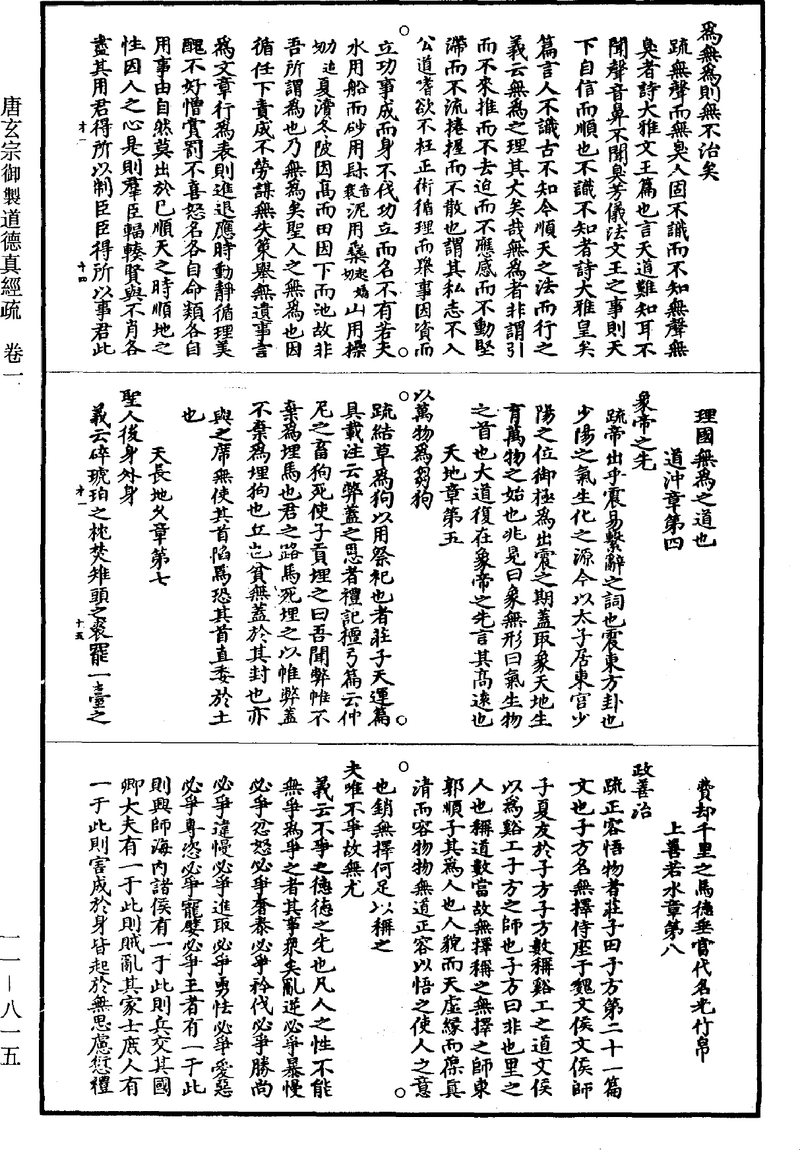 爲無爲則無不治矣
疏無聲而無臭人固不識而不知無聲無
臭者詩大雅文王篇也言天道難知耳不
聞聲音鼻不聞臭芳儀法文王之事則天
下自信而順也不識不知者詩大雅皇矣
篇言人不識古不知今順天之法而行之
義云無爲之理其大矣哉無爲者非謂引
而不來推而不去迫而不應感而不動堅
滯而不流捲握而不散也謂其私志不入
公道嗜欲不枉正術循理而舉事因資而
立功事成而身不伐功立而名不有若夫
水用船而砂用𨃖音泥用山用樏
夏瀆冬陂因高而田因下而池故非
吾所謂爲也乃無爲矣聖人之無爲也因
循任下責成不勞謀無失策舉無遺事言
爲文章行爲表則進退應時動靜循理美
醜不好憎賞罰不喜怒名各自命類各自
用事由自然莫出於已順天之時順地之
性因人之心是則羣臣輻輳賢與不肖各
盡其用君得所以制臣臣得所以事君此
理國無爲之道也
道沖章第四
象帝之先
疏帝出乎震易繫辭之詞也震東方卦也
少陽之氣生化之源今以太子居東宮少
陽之位御極爲出震之期蓋取象天地生
育萬物之始也兆見曰象無形曰氣生物
之首也大道復在象帝之先言其高遠也
天地章第五
以萬物爲芻狗
疏結草爲狗以用祭祀也者莊子天運篇
具載注云弊蓋之恩者禮記檀弓篇云仲
尼之畜狗死使子貢埋之曰吾聞弊帷不
棄爲埋馬也君之路馬死埋之以帷弊蓋
不棄爲埋狗也丘也貧無蓋於其封也亦
與之席無使其首陷焉恐其首直委於土
也
天長地久章第七
聖人後身外身
義云碎琥珀之枕焚雉頭之裘罷一臺之
費却千里之馬德垂當代名光竹帛
上善若水章第八
政善治
疏正容悟物者莊子田子方第二十一篇
文也子方名無擇侍座于魏文侯文侯師
子夏友於子方子方數稱谿工之道文侯
以爲谿工子方之師也子方曰非也里之
人也稱道數當故無擇稱之無擇之師東
郭順子其爲人也人貌而天虛緣而葆真
清而容物物無道正容以悟之使人之意
也銷無擇何足以稱之
夫唯不爭故無尤
義云不爭之德德之先也凡人之性不能
無爭爲爭之者其事衆矣亂逆必爭暴慢
必爭忿怒必爭奢泰必爭矜伐必爭勝尚
必爭違慢必爭進取必爭勇怯必爭愛惡
必爭專恣必爭寵嬖必爭王者有一于此
則興師海內諸侯有一于此則兵交其國
卿大夫有一于此則賊亂其家士庶人有
一于此則害成於身皆起於無思慮愆禮
唐玄宗御製道德真經疏 卷一
十四
十五
一一—八一五